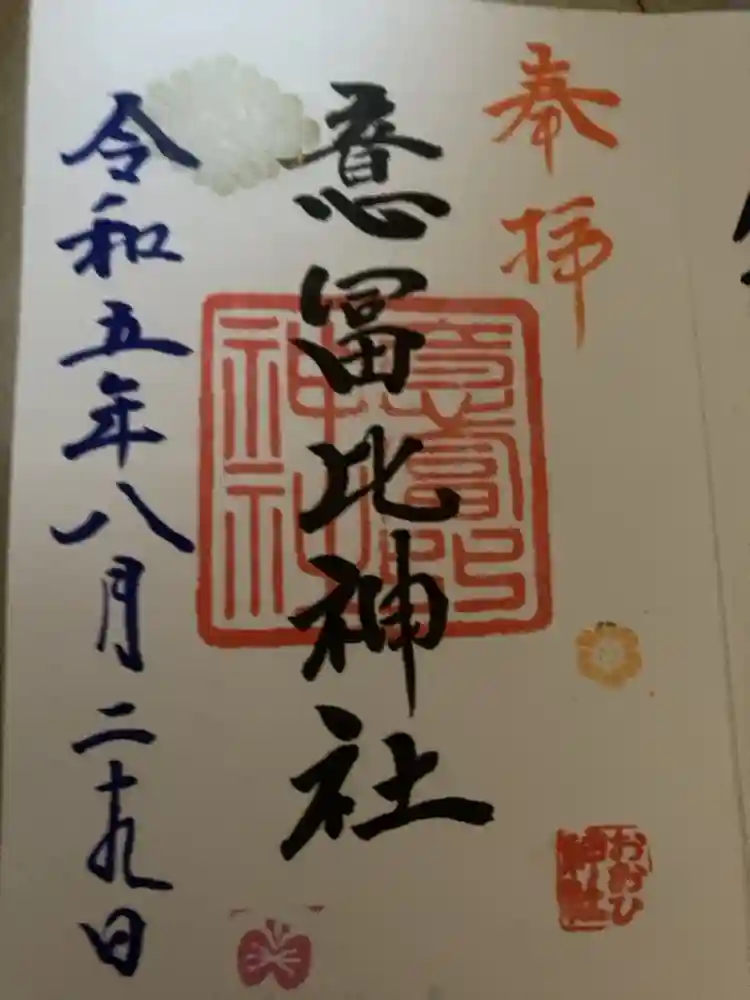 奉拝
意冨比神社
意富比
神社
令和五年八月二十九日
おおひ
神社